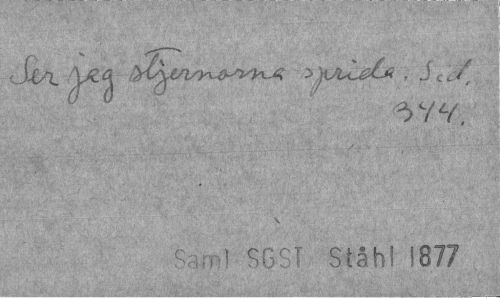 Ser jag stjernorna sprida. S.d.
344.
Saml SGST Ståhl 1877